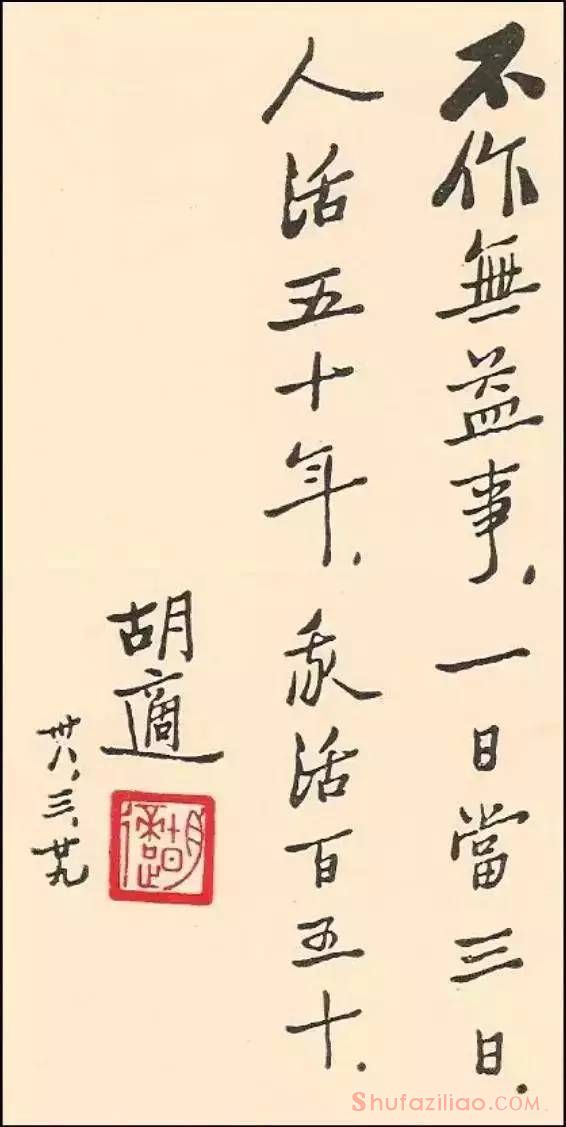 不作無益事，一日當三日．
人活五十年，我活百五十．
胡適
卅八、三、廿九
胡適
Shufaziliao.COM